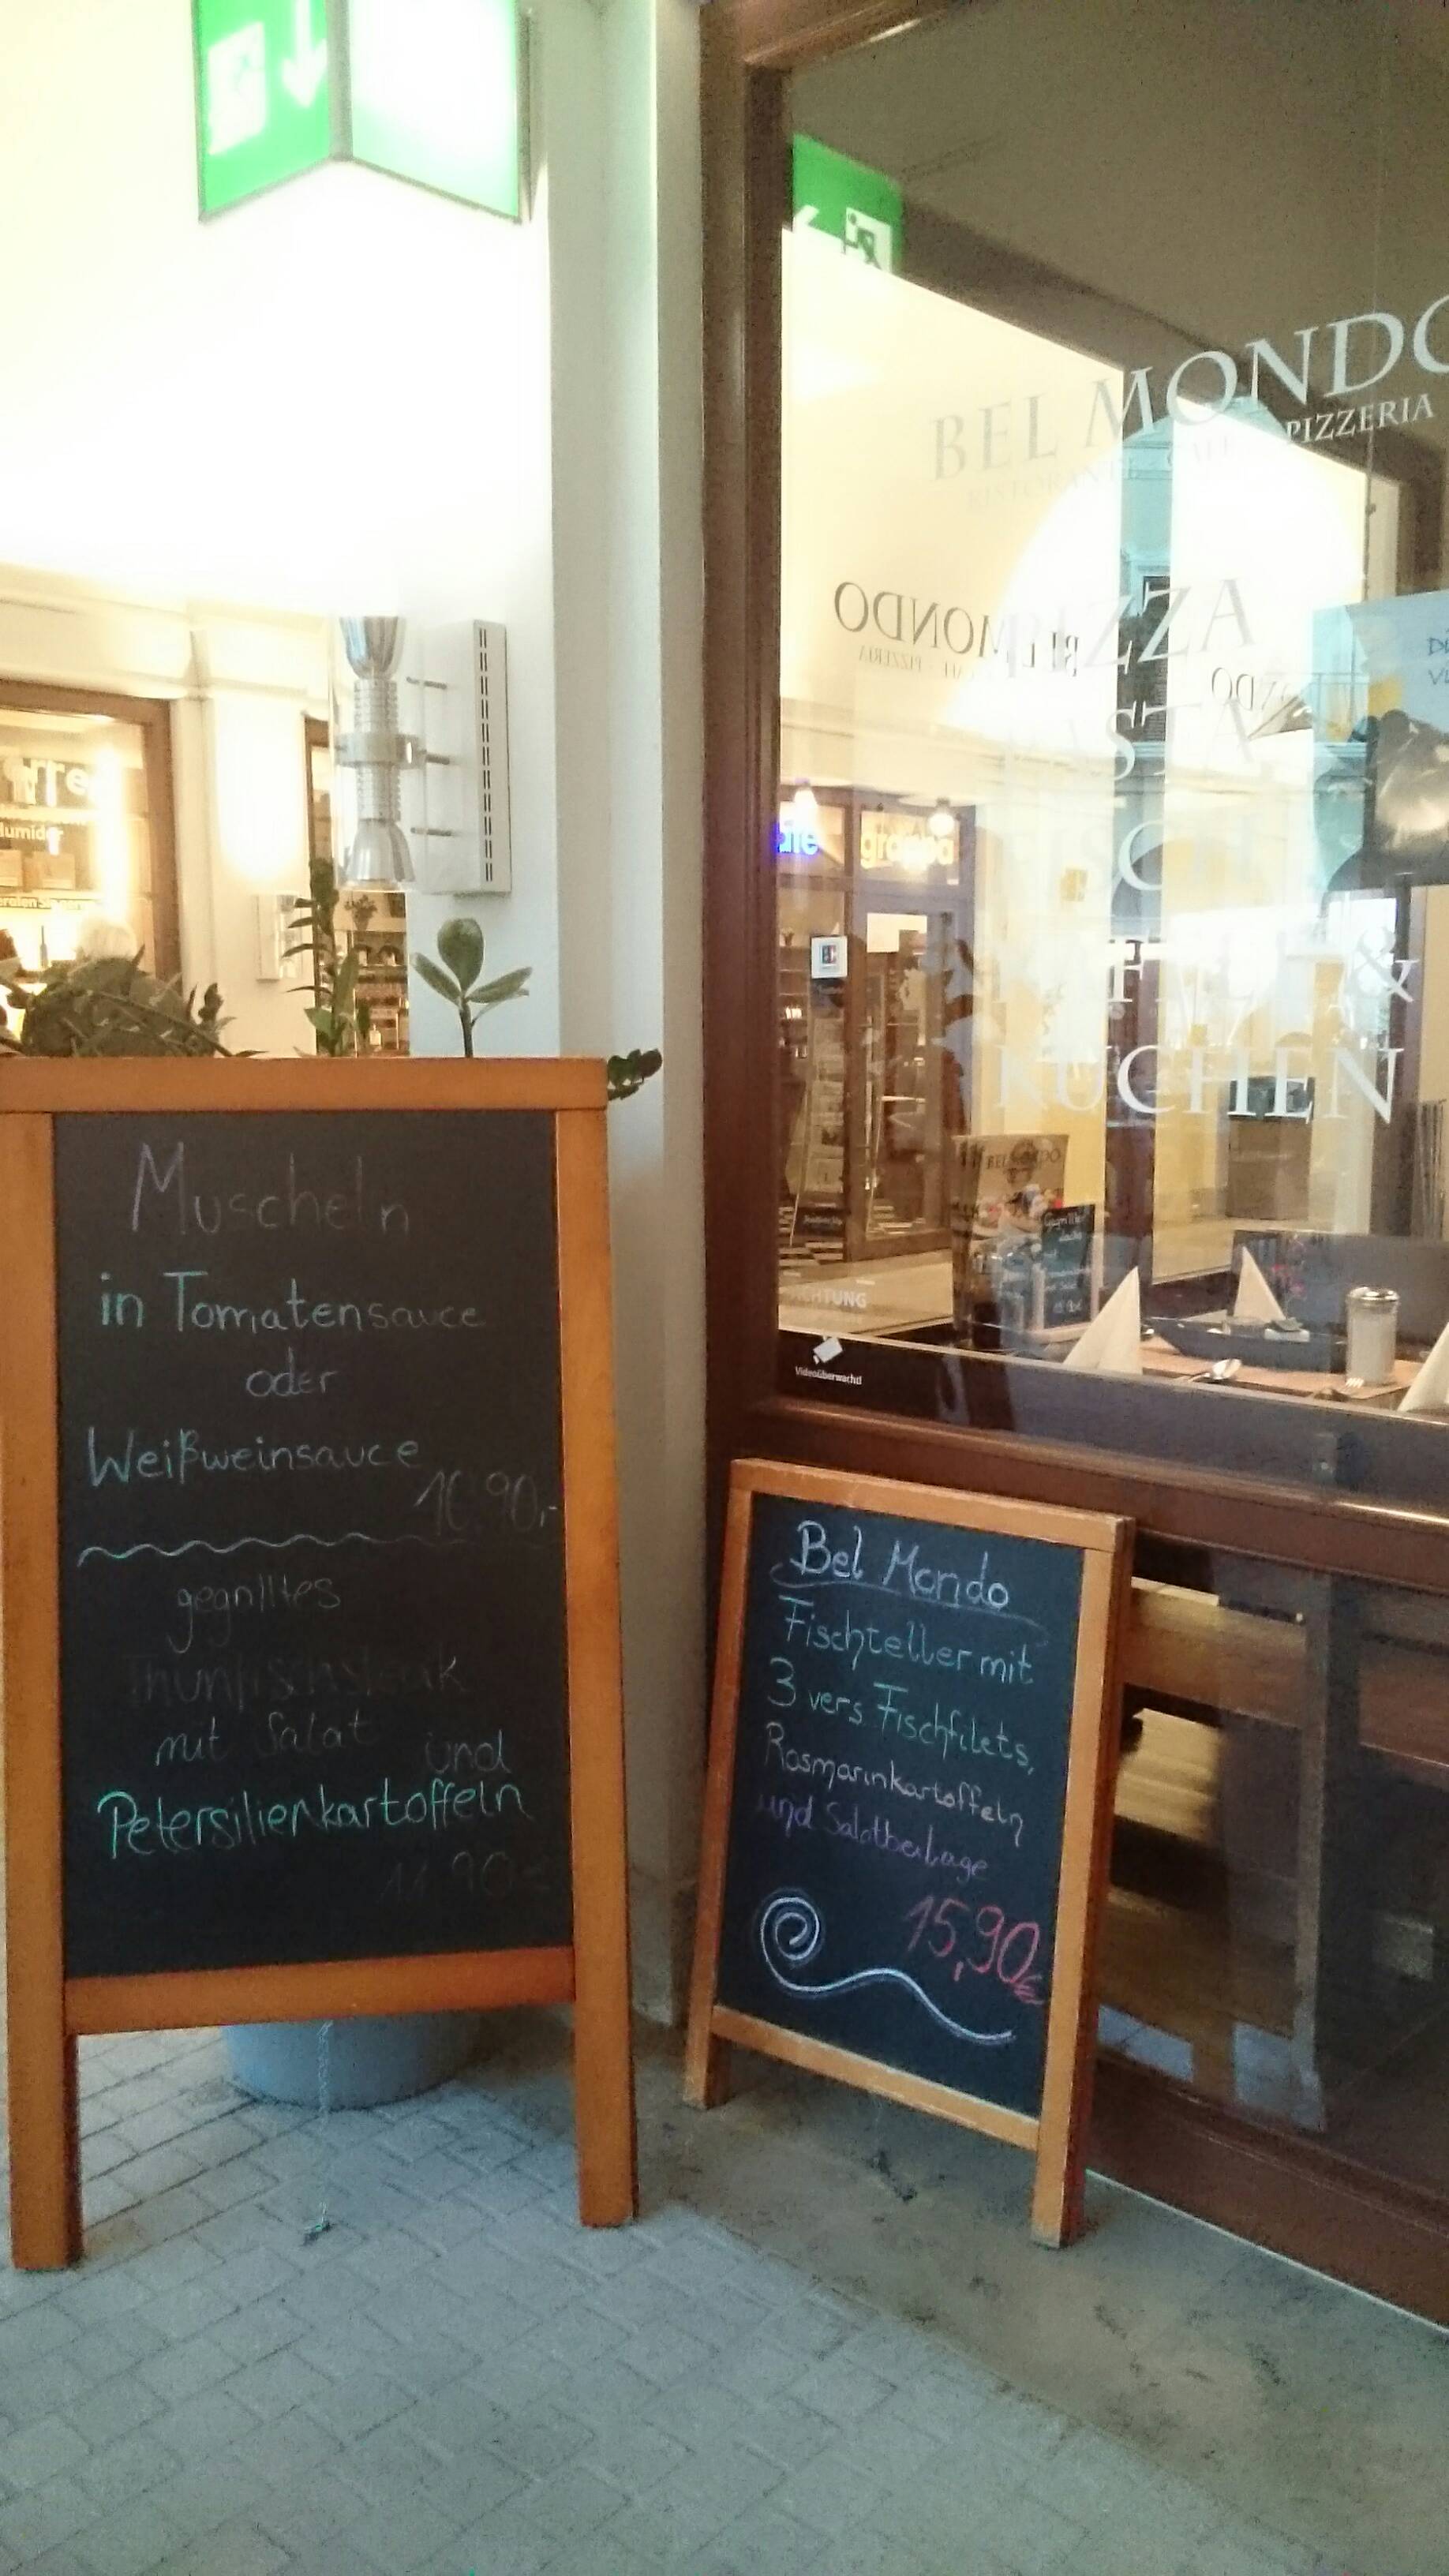 BEL MONDO
RISTORANTE - CAFE - PIZZERIA
BEL MONDO
PIZZA
PASTA
FISCH
KAFFEE &
KUCHEN
grappa
ACHTUNG
Videoüberwacht
Muscheln
in Tomatensauce
oder
Weißweinsauce
10,90,-
gegrilltes
Thunfischsteak
mit Salat und
Petersilienkartoffeln
11,90€
Bel Mondo
Fischteller mit
3 vers Fischfilets,
Rosmarinkartoffeln
und Salatbeilage
15,90€